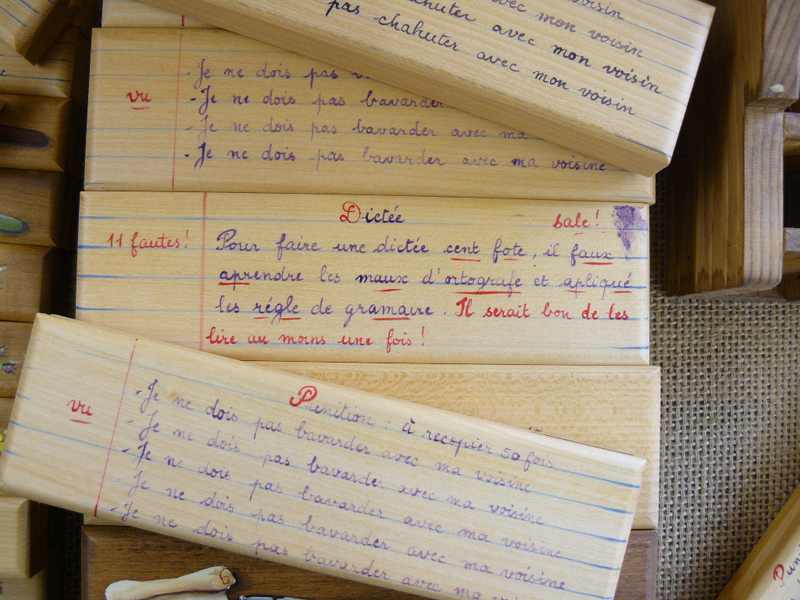 avec mon voisin
chahuter avec mon voisin
pas chahuter avec mon voisin
- Je ne dois pas
vu
- Je ne dois pas bavarder
- Je ne dois pas bavarder avec ma
- Je ne dois pas bavarder avec ma voisine
Dictée
sale !
11 fautes !
Pour faire une dictée cent fote, il faux
aprendre les maux d'ortografe et apliqué
les régle de gramaire. Il serait bon de les
lire au moins une fois !
Punition : à recopier 50 fois
vu
- Je ne dois pas bavarder avec ma voisine
- Je ne dois pas bavarder avec ma voisine
- Je ne dois pas bavarder avec ma voisine
Je ne dois pas bavarder avec ma voisine
- Je ne dois pas bavarder avec ma